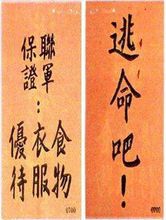 聯軍保證：
優待
衣服
食物
逃命吧！